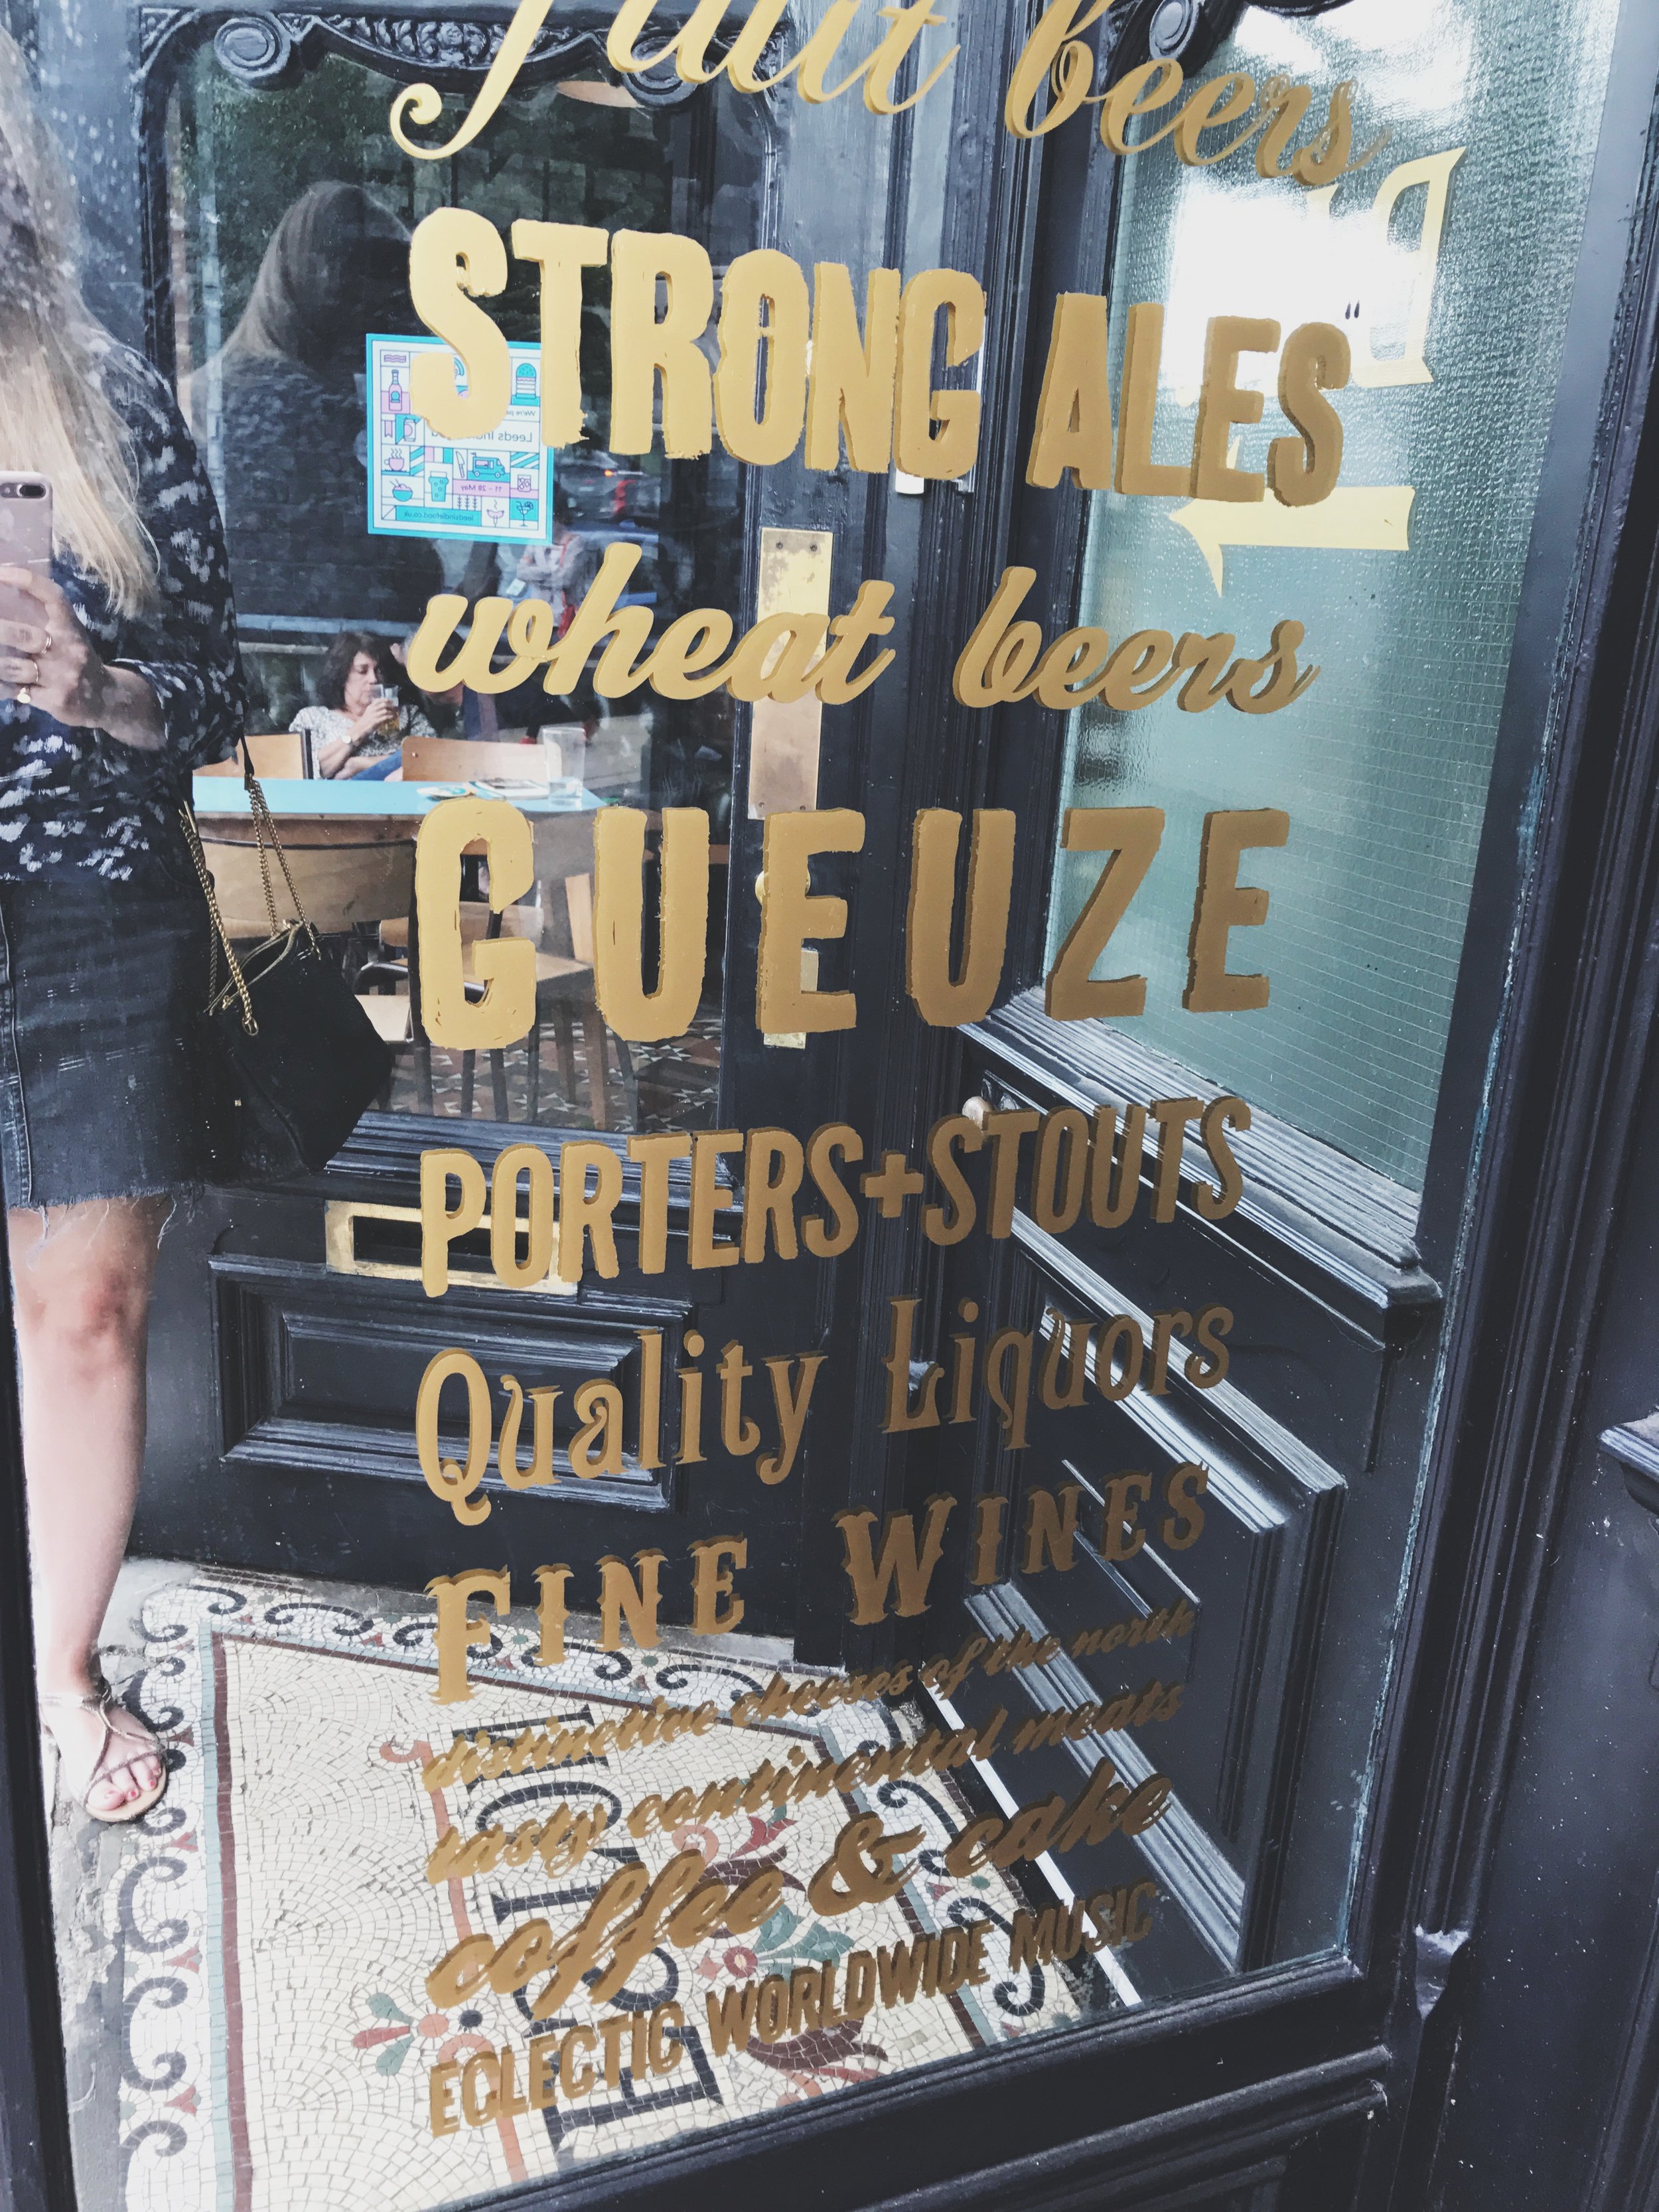 fruit beers
STRONG ALES
wheat beers
GUEUZE
PORTERS+STOUTS
Quality Liquors
FINE WINES
distinctive cheeses of the north
tasty continental meats
coffee & cake
ECLECTIC WORLDWIDE MUSIC
We're
Leeds Indie
11 - 28 May
leedsindiefood.co.uk